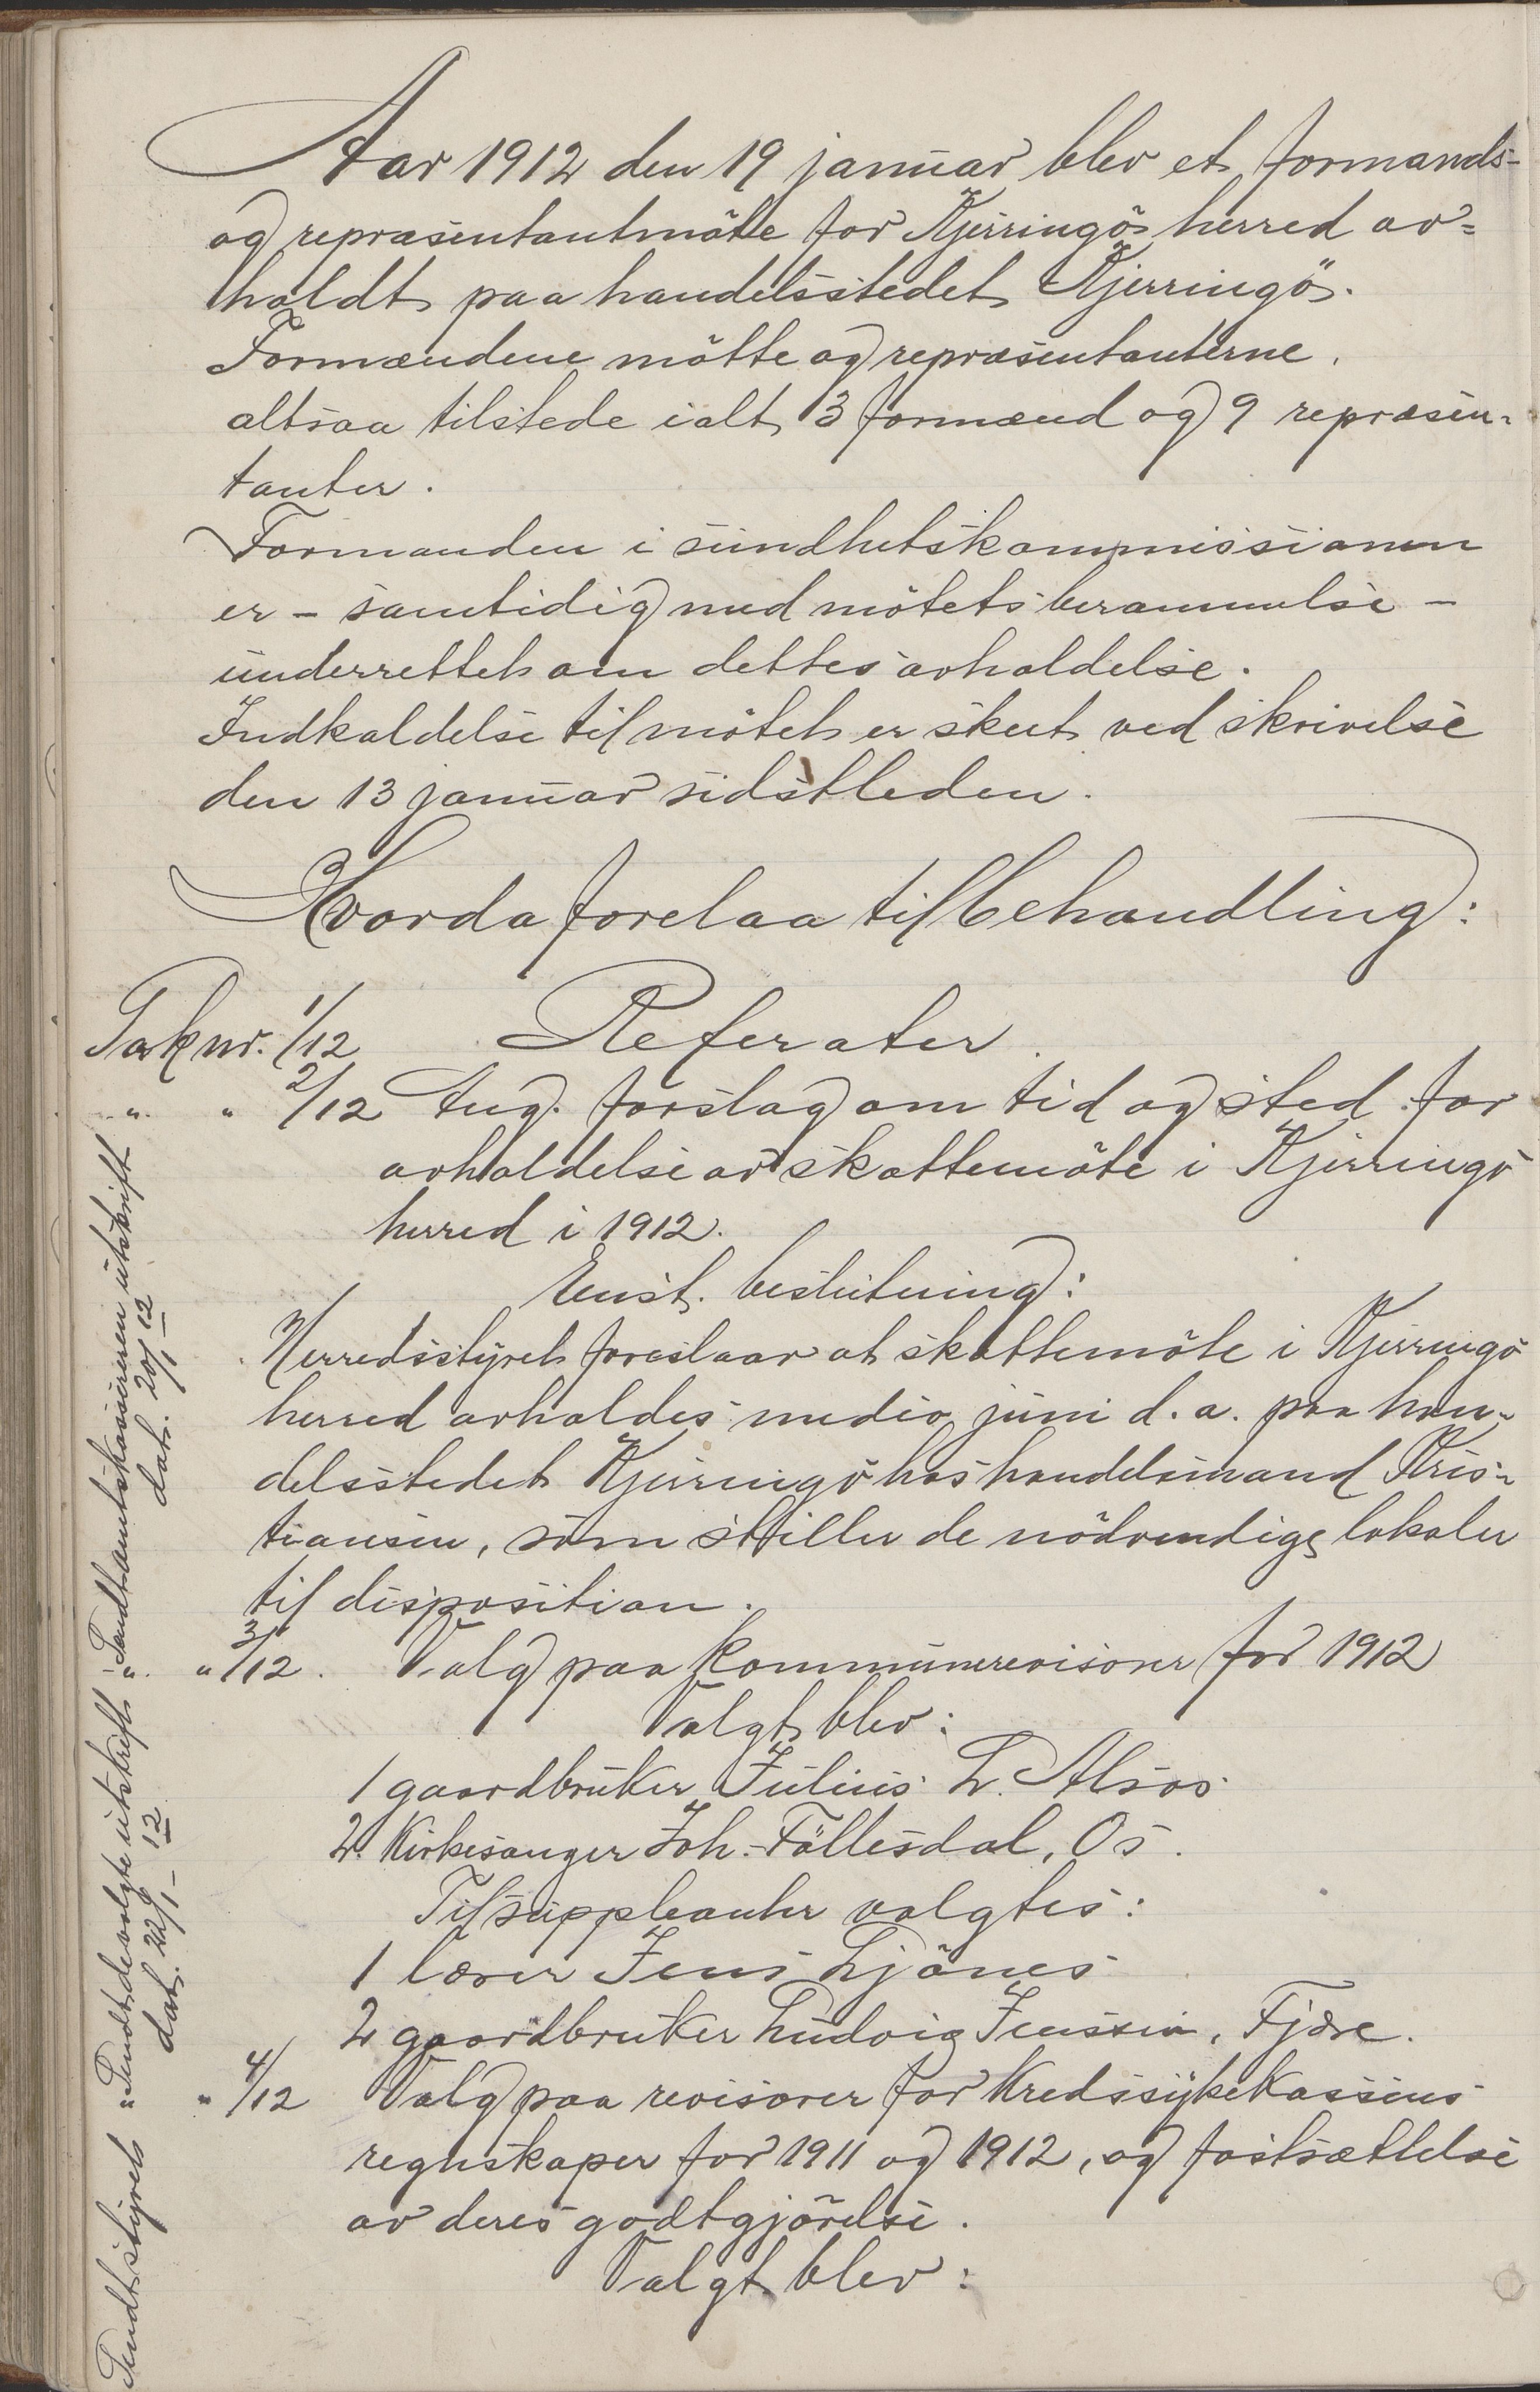 Aar 1912 den 19 januar blev et formands-
og repræsentantmöte for Kjerringö herred av=
holdt paa handelsstedet Kjerringö.
Formændene mötte og repræsentanterne.
altsaa tilstede ialt 3 formænd og 9 repræsen-
tanter.
Formanden i sundhetskommissionen
er - samtidig med mötets berammelse -
underrettet om dettes avholdelse.
Indkaldelse til mötet er skeet ved skrivelse
den 13 januar sidstleden.
Hvorda forelaa til behandling:
Sak nr. 1/12 Referater.
" " 2/12 Ang. forslag om tid og sted for
avholdelse av skattemöte i Kjerringö
herred i 1912.
Enst. beslutning:
Herredsstyret foreslaar at skattemöte i Kjerringö
herred avholdes medio juni d.a. paa han-
delsstedet Kjerringö hos handelsmand Kris-
tiansen, som stiller de nödvendige lokaler
til disposition.
" 3/12. Valg paa kommunerevisorer for 1912
Valgt blev:
1 gaardbruker Julius L. Alsos
2. Kirkesanger Joh. Föllesdal, Os.
Til suppleanter valgtes:
1 lærer Jens Ljönes
2 gaardbruker Ludvig Jenssen, Fjære.
" 4/12 Valg paa revisorer for Kredssykekassens
regnskaper for 1911 og 1912, og fastsættelse
av deres godtgjörelse.
Valgt blev:
Sendt amtskassereren utskrift
dat. 20/1 12
Sendt de valgte utskrift
dat. 22/1 - 12
Sendt styret